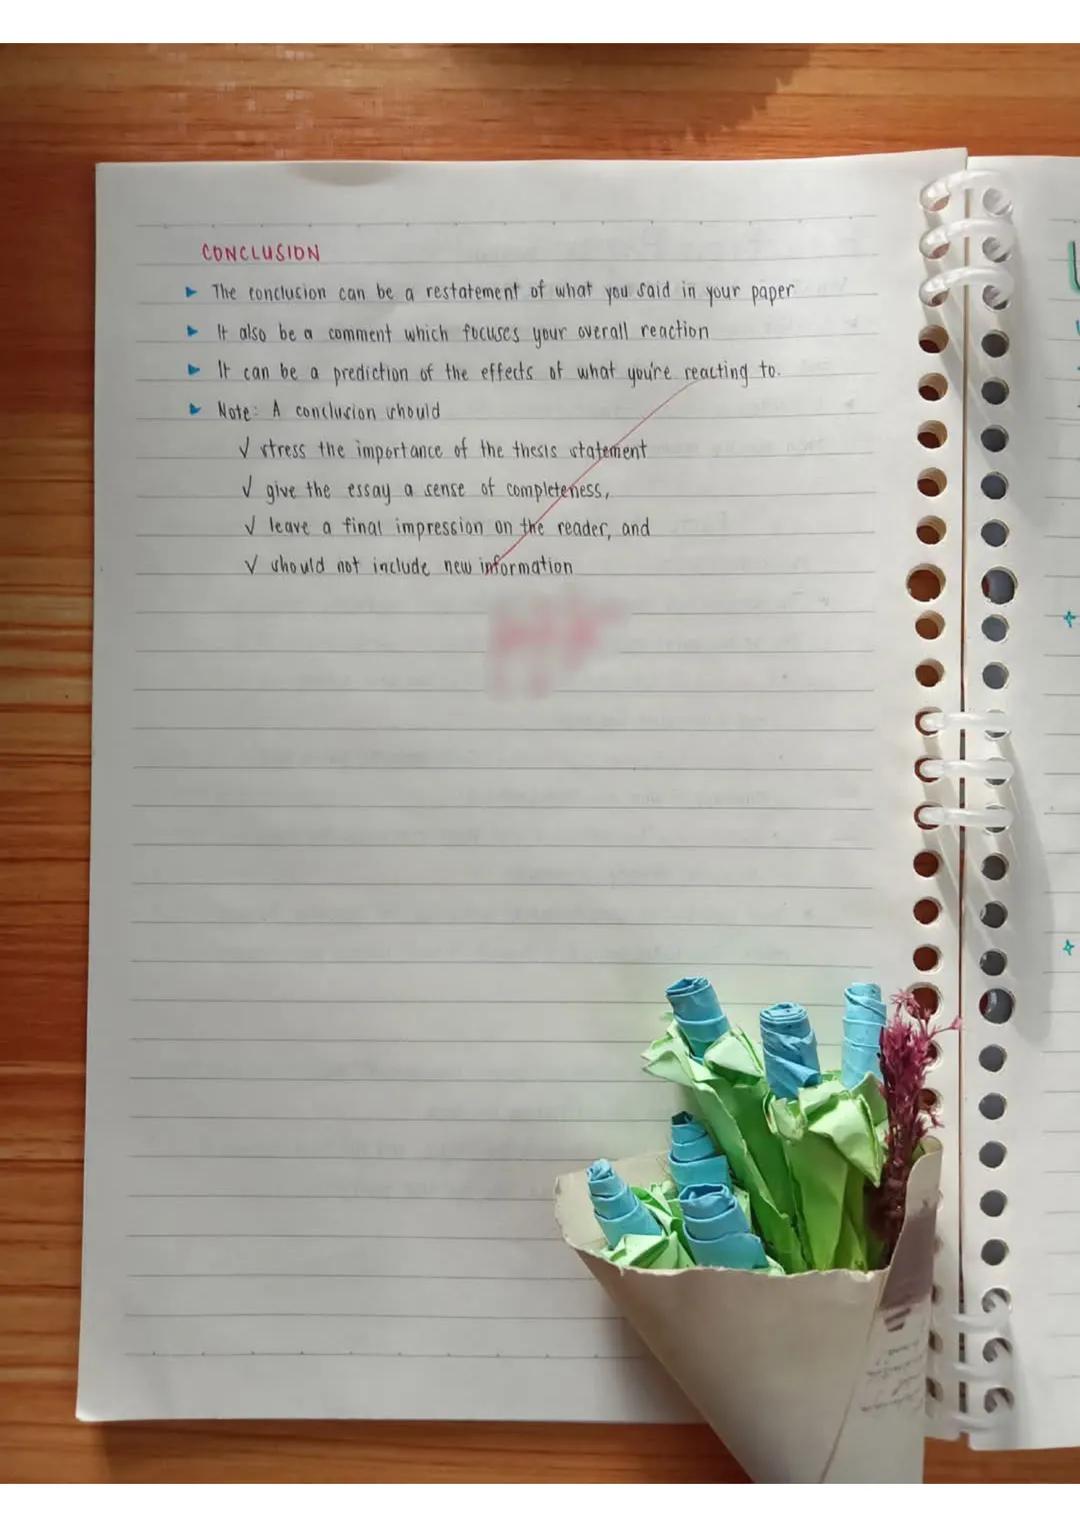 CONCLUSION
► The conclusion can be a restatement of what you said in your paper
► It also be a comment which focuses your overall reaction
► It can be a prediction of the effects of what you're reacting to.
► Note: A conclusion should
√ stress the importance of the thesis statement
√ give the essay a sense of completeness,
√ leave a final impression on the reader, and
√ should not include new information